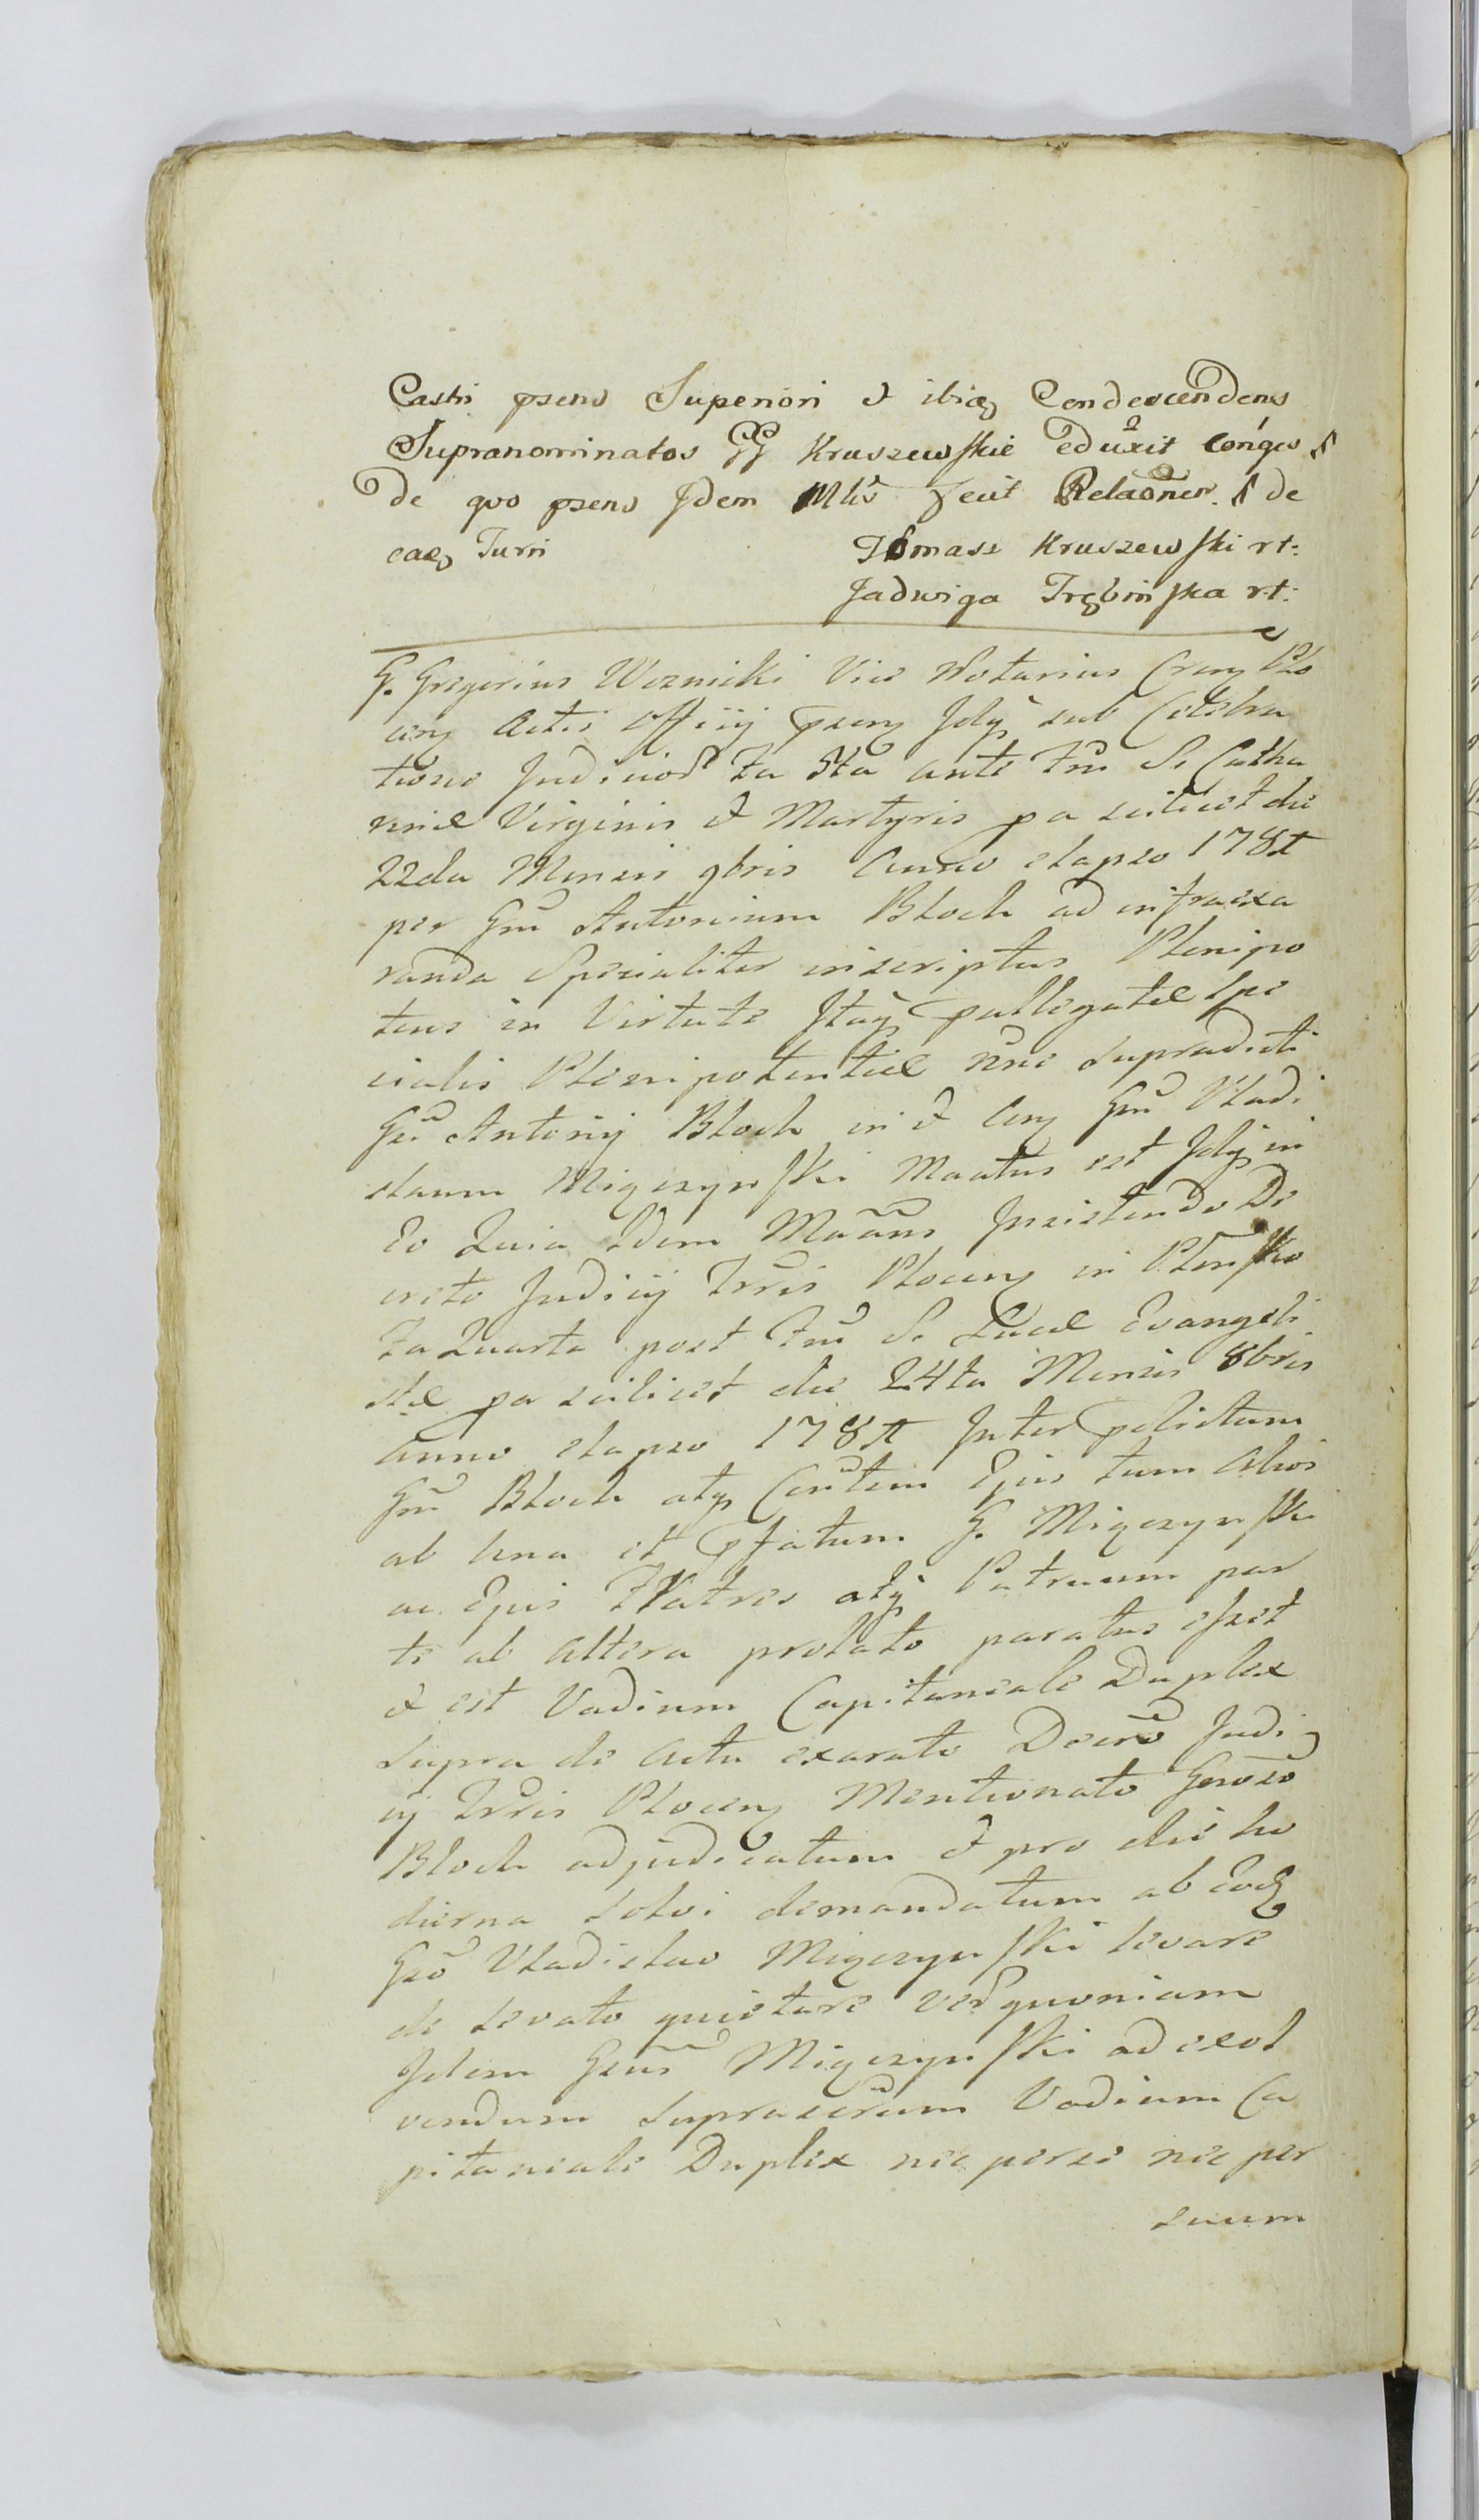 Castri psens Superiori & ibiq Condescendens
Supranominatos GG Kruszewskie eduxit congw
De quo psens Jdem Mlis fecit Relaonem. de
eaq Turri Tomasz Kruszewski rt:
Jadwiga Trębińska rt:
G. Gregorius Woznicki Vice Notarius Crens Plo
cens Actis Officij psens Jdq sub Celebra
tione Judicior Fa 5ta ante Fm S. Catha
rinæ Virginis & Martyris pa scilicet die
22da Mensis 9bris Anno elapso 178
per Gm Antonium Bloch ad infraexa
randa Specialiter inscriptus Plenipo
tens in Virtute Jtaq pallegatæ Spe
cialis Plenipotentiæ nne supradicti
Gsi Antonij Bloch in & Cony Gm Vladi
slaum Miączynski Maatus est Jdq in
Eo Quia Idem Maans Jnsistendo De
creto Judicij Trris Plocens in Plonsko
Fa Quarta post Fm S. Lucæ Evangeli
stæ pa scilicet die 24ta Mensis 8bris
Anno elapso 178 Jnter pdictum
Gm Bloch atq Contem Ejus tum Alios
ab Una et pfatum G. Miączynski
ac Ejus Fratres atq Patruum par
te ab Altera prolato paratus esset
& est Vadium Capitaneale Duplex
Supra de Actu exarato Decro Judi
cij Trris Plocens Mentionato Gnoso
Bloch adjudicatum & pro die ho
dierna Solvi demandatum ab Eodq
Gso Vladislao Miączynski levare
de levato quietare verq quoniam
Jdem Gsus Miączynski ad exol
vendum Suprascrum Vadium Ca
pitaneale Duplex nec per se nec per
suum